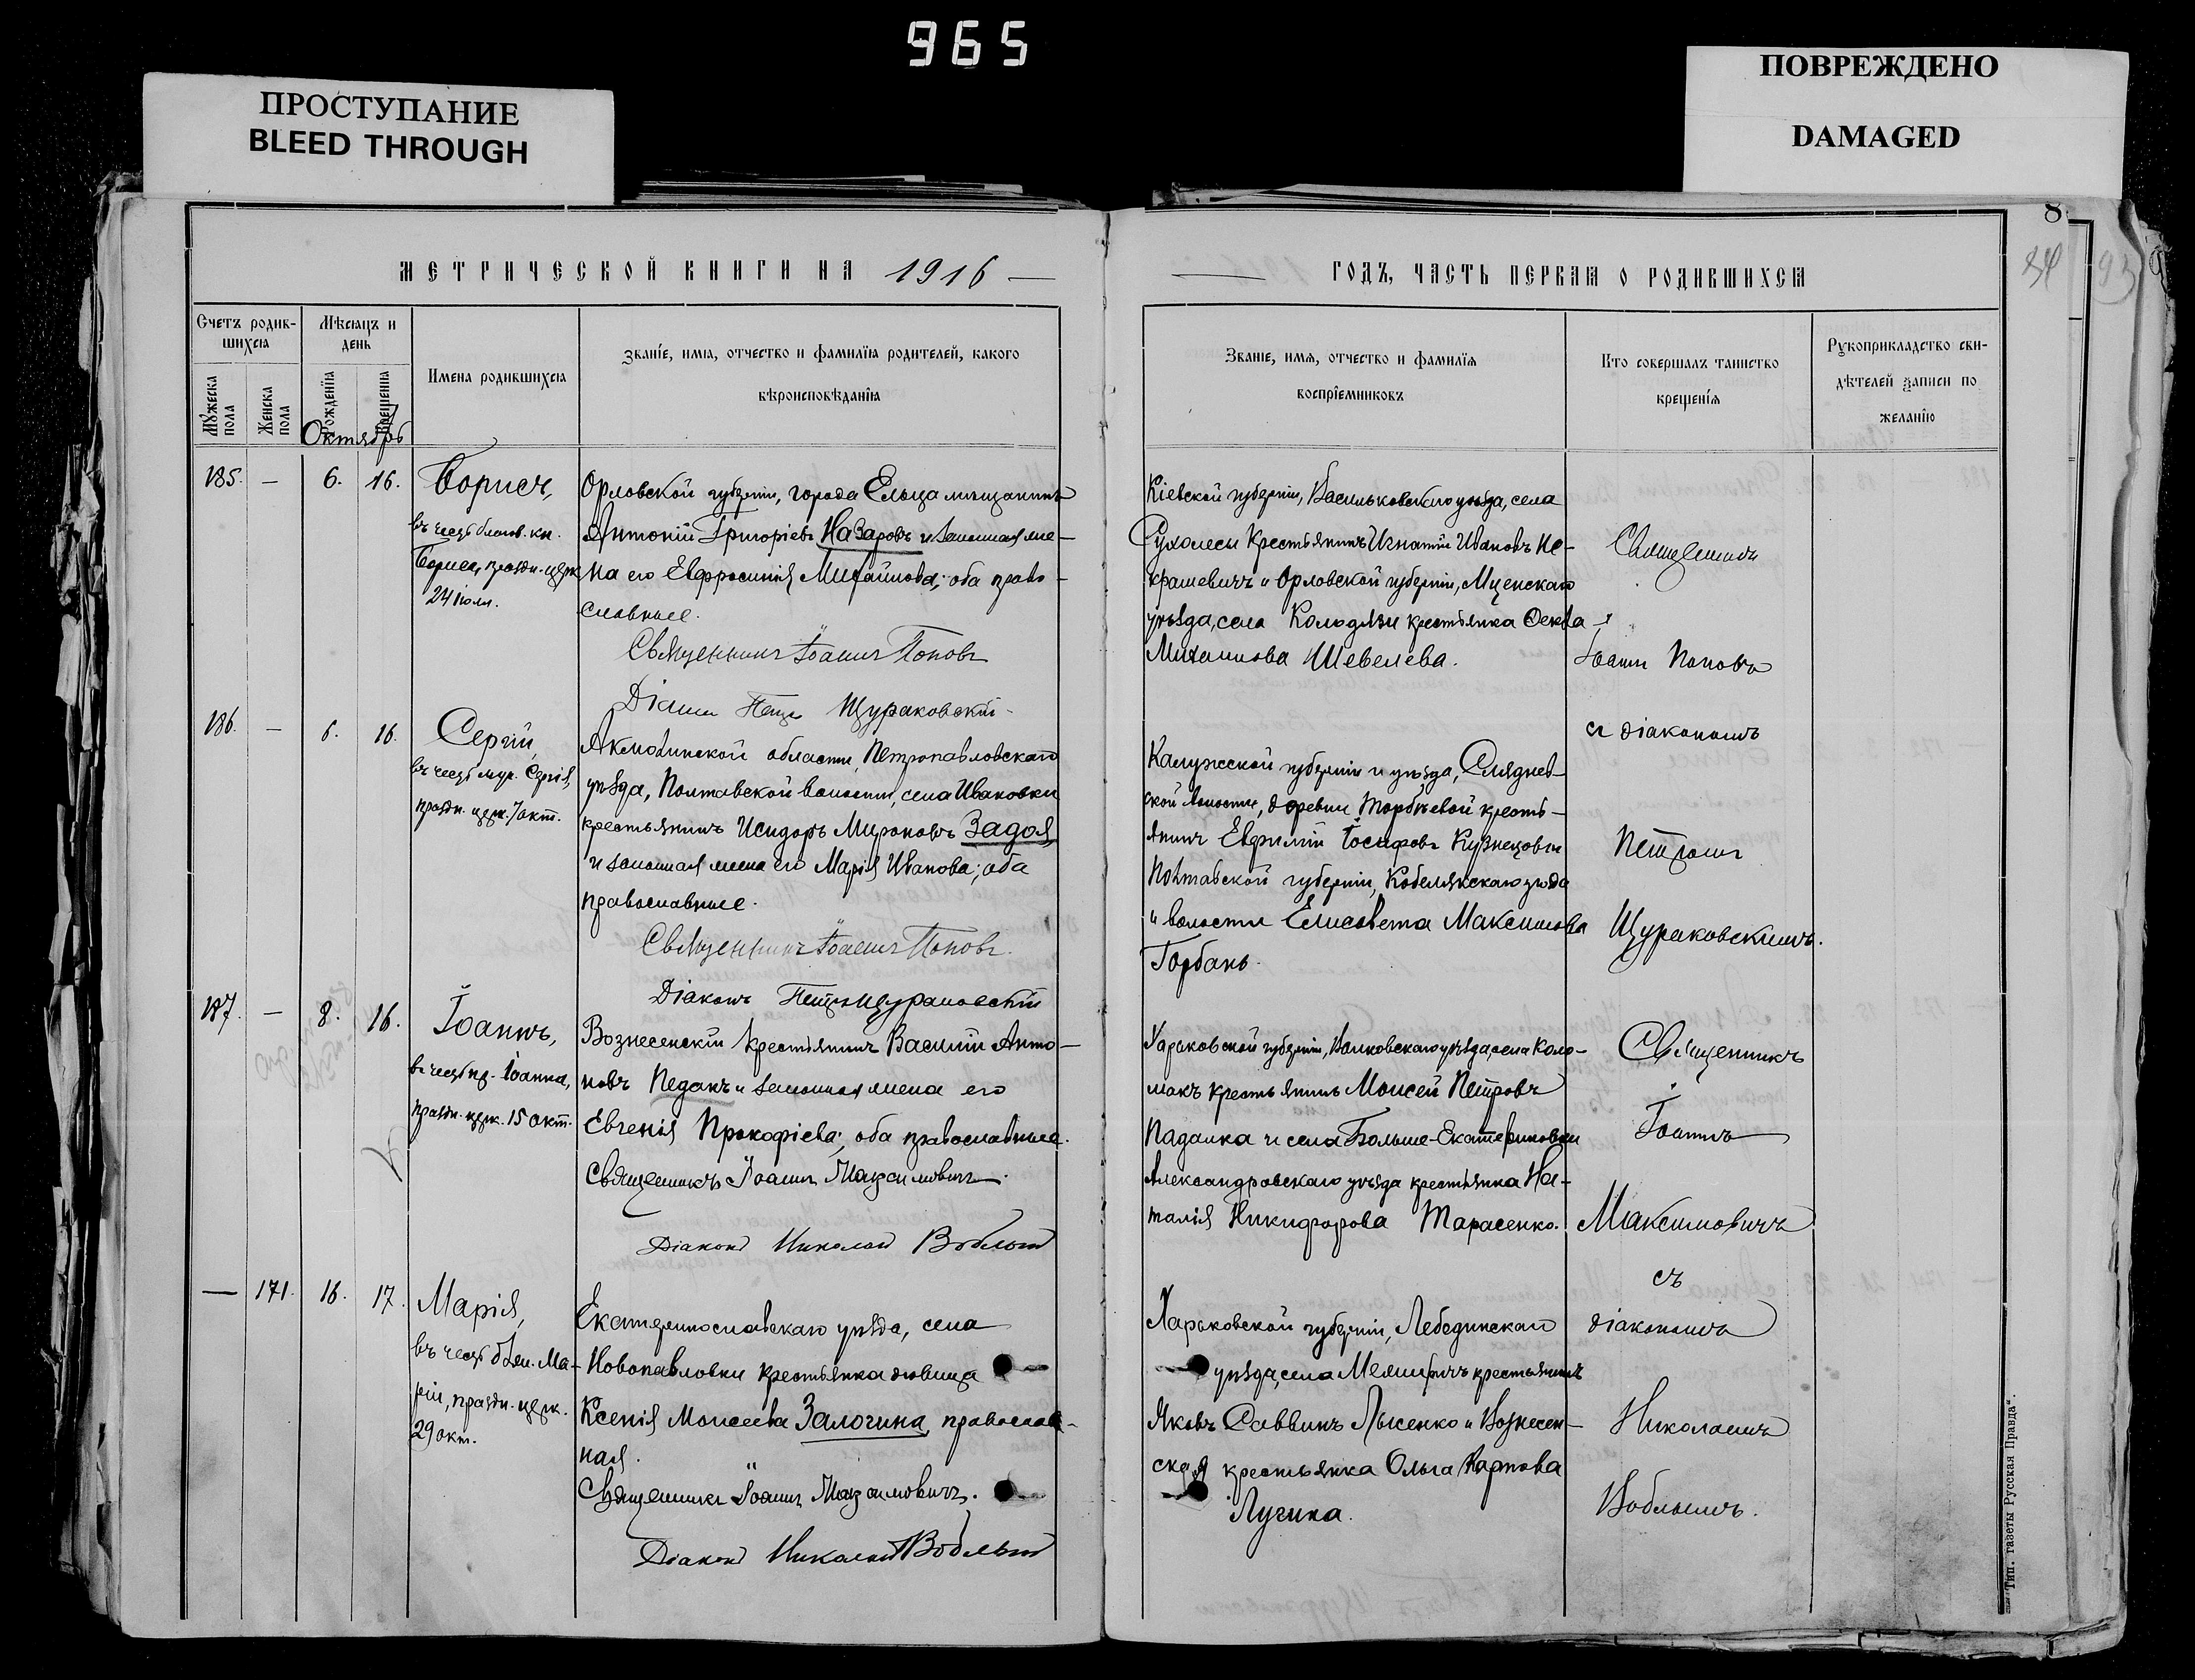 965
ПРОСТУПАНИЕ
BLEED THROUGH
ПОВРЕЖДЕНО
DAMAGED
МЕТРИЧЕСКОЙ КНИГИ НА 1916 —
Счетъ родив-
шихся
Мѣсяцъ и
день
Имена родившихся
Званіе, имя, отчество и фамилія родителей, какого
вѣроисповѣданія
Мужеска пола
Женска пола
Рожденія
Крещенія
Октябрь
185. — 6. 16.
Борисъ,
въ честь благов. кн.
Бориса, праздн. церк.
24 іюля.
Орловской губерніи, города Ельца мѣщанинъ
Антоній Григорьевъ Назаровъ и законная же-
на его Евфросинія Михайлова; оба право-
славные.
Священникъ Іоаннъ Поповъ
Діаконъ Петръ Щураковскій
186. — 6. 16.
Сергій,
въ честь муч. Сергія,
праздн. церк. 7 окт.
Акмолинской области, Петропавловскаго
уѣзда, Полтавской волости, села Ивановки
крестьянинъ Исидоръ Мироновъ Задоя
и законная жена его Марія Иванова; оба
православные.
Священникъ Іоаннъ Поповъ.
Діаконъ Петръ Щураковскій
187. — 8. 16.
Іоаннъ,
въ честь пр. Іоанна,
праздн. церк. 15 окт.
Вознесенскій крестьянинъ Василій Анто-
новъ Педакъ и законная жена его
Евгенія Прокофіева; оба православные.
Священникъ Іоаннъ Максимовичъ.
Діаконъ Николай Воблый
— 171. 16. 17.
Марія,
въ честь блаж. Ма-
ріи, праздн. церк.
29 окт.
Екатеринославскаго уѣзда, села
Новопавловки крестьянка дѣвица
Ксенія Моисеева Залогина, православ-
ная.
Священникъ Іоаннъ Максимовичъ.
Діаконъ Николай Воблый
— ГОДЪ, ЧАСТЬ ПЕРВАЯ О РОДИВШИХСЯ
8
84
93
Званіе, имя, отчество и фамилія
воспріемниковъ
Кто совершалъ таинство
крещенія
Рукоприкладство сви-
дѣтелей записи по
желанію
Кіевской губерніи, Васильковскаго уѣзда, села
Сухолесы крестьянинъ Игнатій Ивановъ Не-
крашевичъ и Орловской губерніи, Мценскаго
уѣзда, села Колодязи крестьянка Ѳекла
Михаилова Шевелева.
Священникъ
Іоаннъ Поповъ
съ діакономъ
Калужской губерніи и уѣзда,
ской волости, деревни Торбѣевой кресть-
янинъ Евфимій Іосифовъ Кузнецовъ и
Полтавской губерніи, Кобелякскаго уѣзда
и волости Елисавета Максимова
Горбань.
Петромъ
Щураковскимъ.
Харьковской губерніи, Валковскаго уѣзда, села Коло-
макъ крестьянинъ Моисей Петровъ
Падалка и села Больше-Екатериновки
Александровскаго уѣзда крестьянка На-
талія Никифорова Тарасенко.
Священникъ
Іоаннъ
Максимовичъ
съ
діакономъ
Харьковской губерніи, Лебединскаго
уѣзда, села крестьянинъ
Яковъ Саввинъ Лысенко и Вознесен-
ская крестьянка Ольга Карпова
Лучина.
Николаемъ
Воблымъ.
Тип. газеты „Русская Правда“.